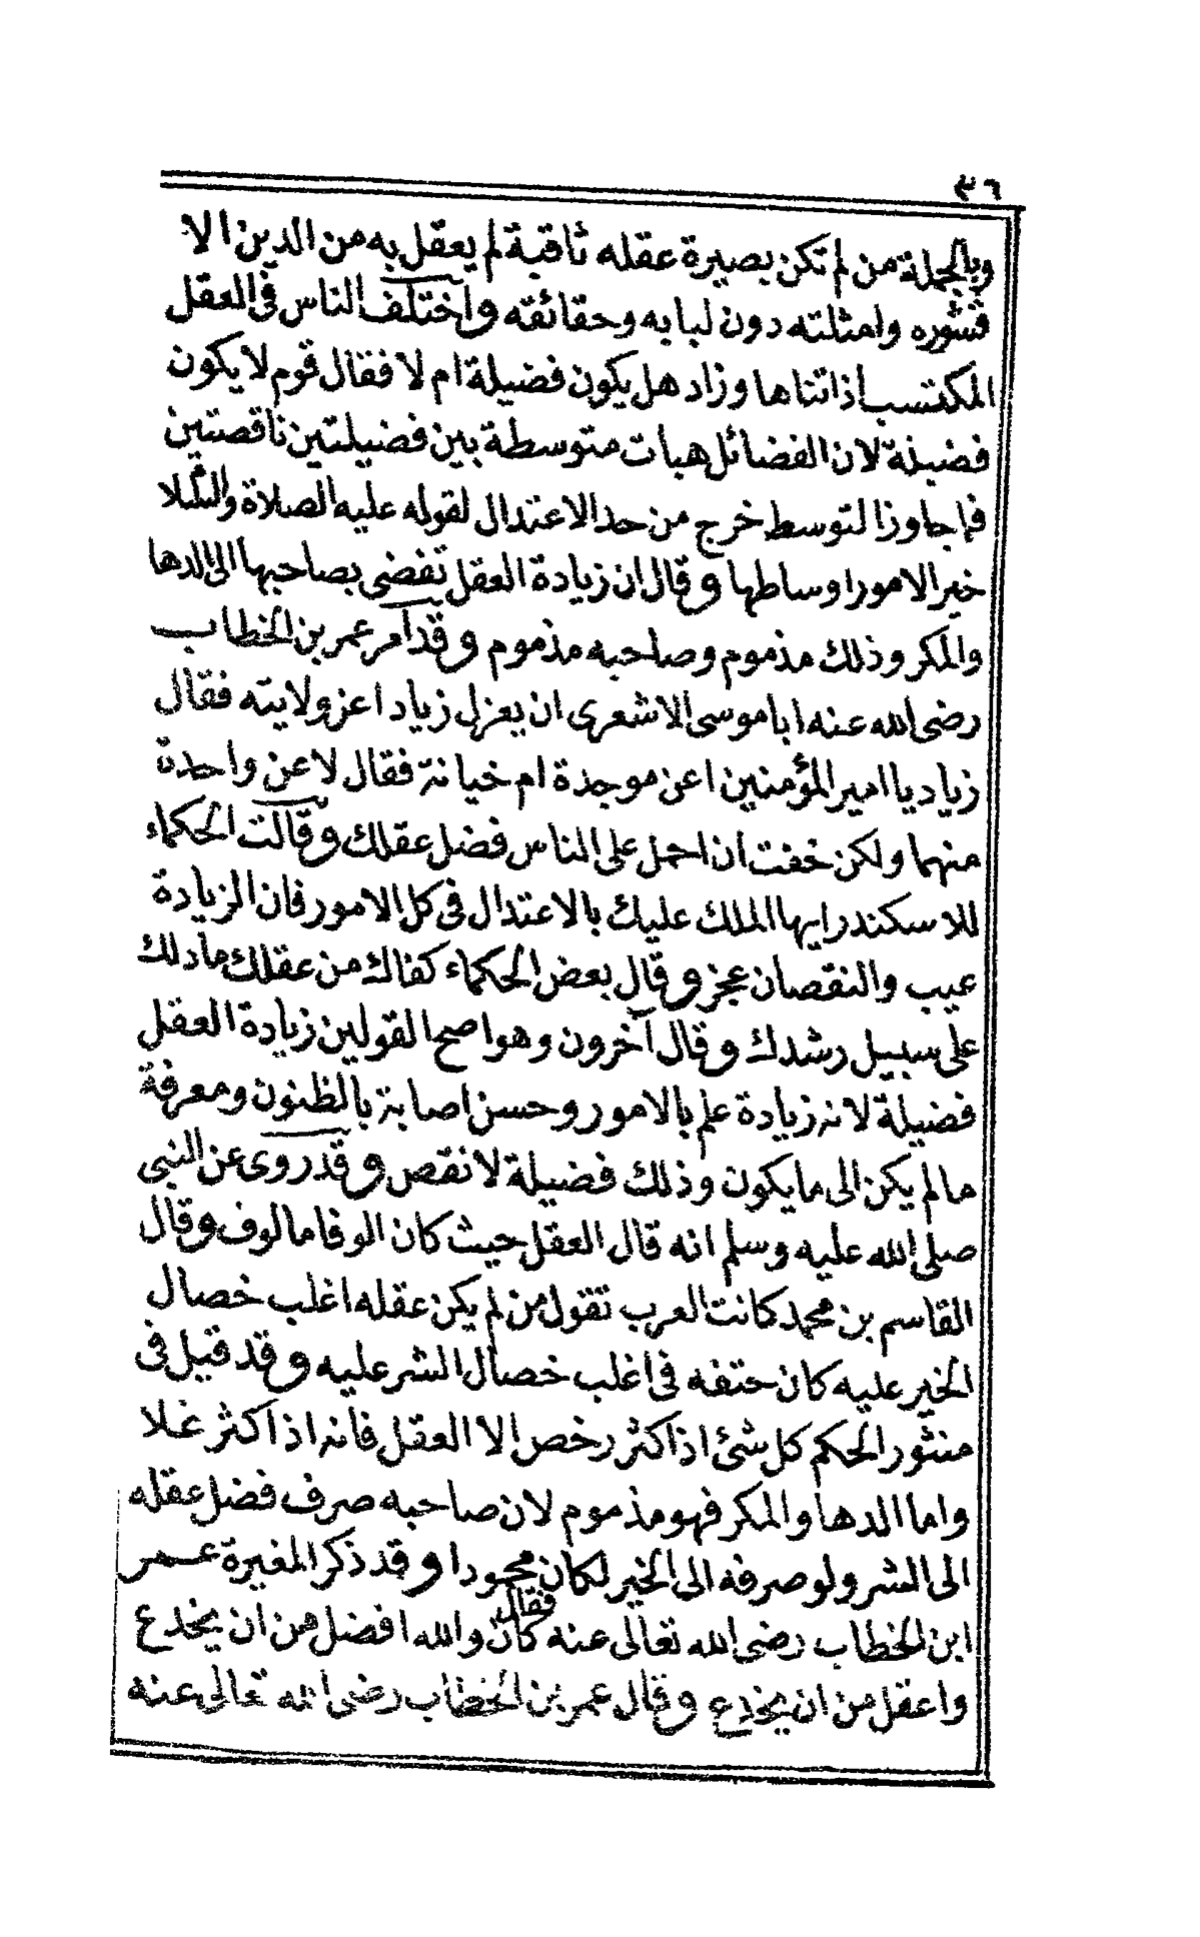 ٣٦
وبالجملة من لم تكن بصيرة عقله ثاقبة لم يعقل به من الدين الا
قشوره وامثلته دون لبابه وحقائقه واختلف الناس فى العقل
المكتسب اذا تناها وزاد هل يكون فضيلة ام لا فقال قوم لا يكون
فضيلة لان الفضائل هبات متوسطة بين فضيلتين ناقصتين
فما جاوز التوسط خرج من حد الاعتدال لقوله عليه الصلاة والسلا
خير الامور اوساطها وقال ان زيادة العقل تفضى بصاحبها الى الدها
والمكر وذلك مذموم وصاحبه مذموم وقد امر عمر بن الخطاب
رضى الله عنه ابا موسى الاشعرى ان يعزل زياد اعز ولايته فقال
زياد يا امير المؤمنين اعن موجدة ام خيانة فقال لا عن واحدة
منهما ولكن خفت ان احمل على الناس فضل عقلك وقالت الحكماء
للاسكندر ايها الملك عليك بالاعتدال فى كل الامور فان الزيادة
عيب والنقصان عجز وقال بعض الحكماء كفاك من عقلك ما دلك
على سبيل رشدك وقال آخرون وهو اصح القولين زيادة العقل
فضيلة لانه زيادة علم بالامور وحسن اصابة بالظنون ومعرفة
ما لم يكن الى ما يكون وذلك فضيلة لا نقص وقد روى عن النبى
صلى الله عليه وسلم انه قال العقل حيث كان الوفا مالوف وقال
القاسم بن محمد كانت العرب تقول من لم يكن عقله اغلب خصال
الخير عليه كان حتفه فى اغلب خصال الشر عليه وقد قيل فى
منثور الحكم كل شئ اذا كثر رخص الا العقل فانه اذا كثر غلا
واما الدها والمكر فهو مذموم لان صاحبه صرف فضل عقله
الى الشر ولو صرفه الى الخير لكان محمودا وقد ذكر المغيرة عمر
ابن الخطاب رضى الله تعالى عنه فقال كان والله افضل من ان يخدع
واعقل من ان يخدع وقال عمر بن الخطاب رضى الله تعالى عنه